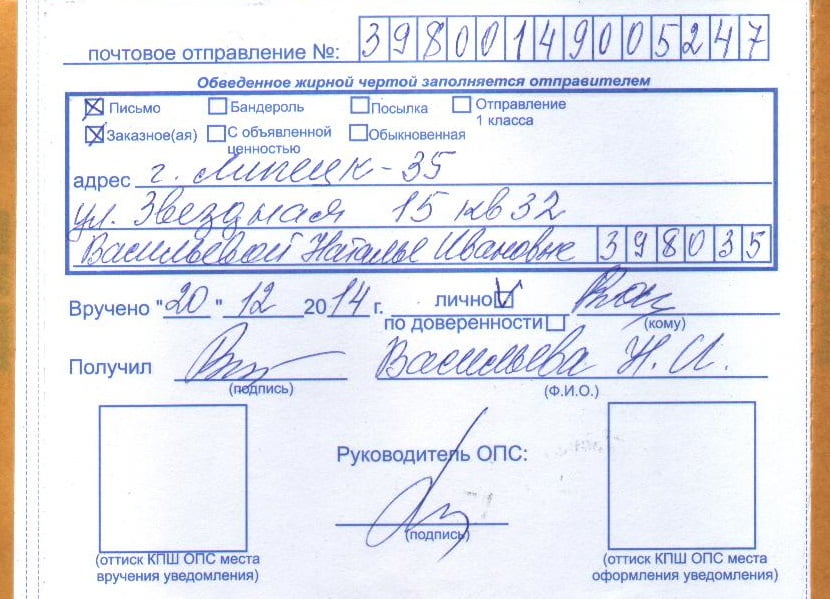 почтовое отправление №: 39800149005247
Обведенное жирной чертой заполняется отправителем
Письмо Бандероль Посылка Отправление 1 класса
Заказное(ая) С объявленной ценностью Обыкновенная
адрес г. Липецк-35
ул. Звездная 15 кв 32
Васильевой Наталье Ивановне 398035
Вручено "20" 12 2014 г. лично
по доверенности (кому)
Получил Васильева Н. И.
(подпись) (Ф.И.О.)
Руководитель ОПС:
(подпись)
(оттиск КПШ ОПС места вручения уведомления)
(оттиск КПШ ОПС места оформления уведомления)